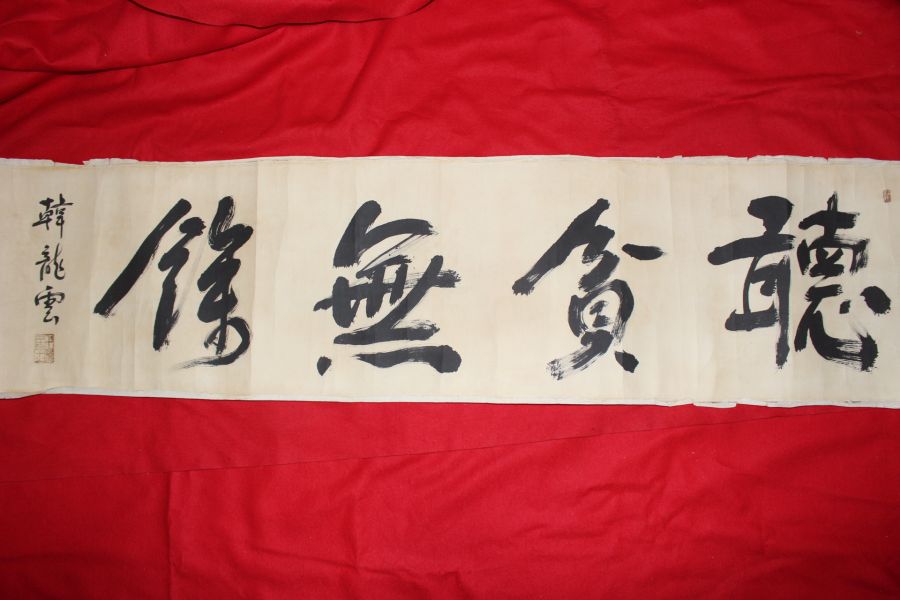 聽貪無餘
韓龍雲